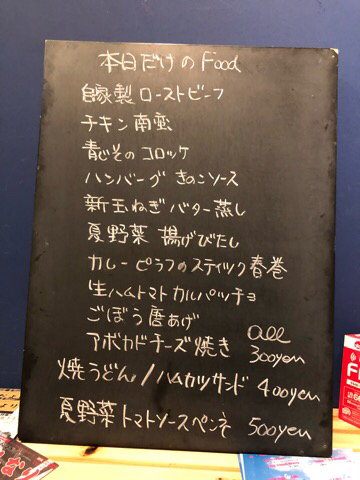 本日だけのFood
自家製ローストビーフ
チキン南蛮
青じそのコロッケ
ハンバーグ きのこソース
新玉ねぎバター蒸し
夏野菜 揚げびたし
カレーピラフのスティック春巻
生ハムトマトカルパッチョ
ごぼう唐あげ
アボカドチーズ焼き
all
300yen
焼うどん/ハムカツサンド 400yen
夏野菜トマトソースペンネ 500yen